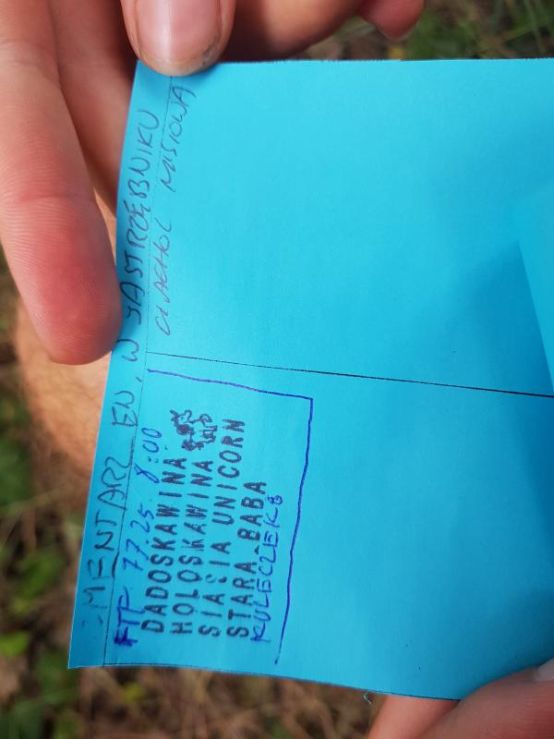 MENTARZ EW. W JASTRZĘBNIKU
CLACHOL MISIOWA
FTF 17.25 8:00
DADOSKAWINA
HOLOSKAWINA
SIASIA UNICORN
STARA BABA
KULECZEK8